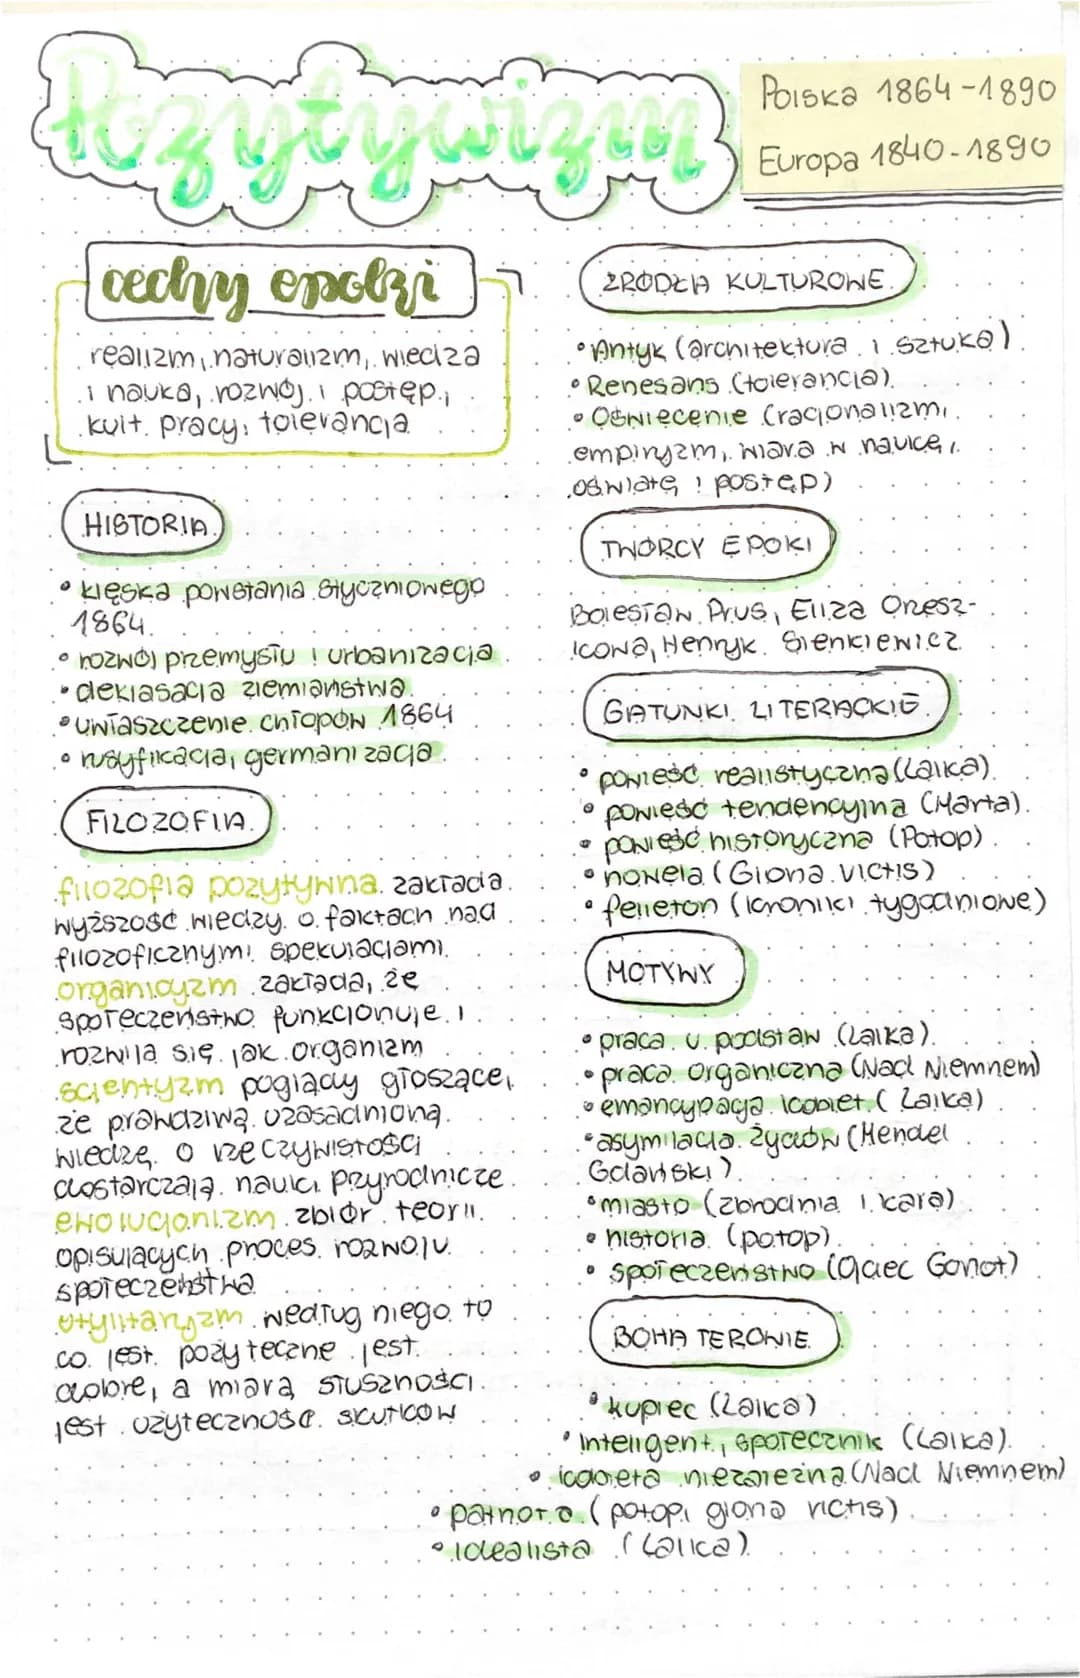 Pozytywizm
Polska 1864-1890
Europa 1840-1890
cechy epoki
realizm, naturalizm, wiedza
i nauka, rozwój i postęp,
kult. pracy, tolerancja
HISTORIA
• klęska powstania styczniowego
1864
• rozwój przemysłu i urbanizacja
• deklasacja ziemiaństwa
• uwłaszczenie chłopów 1864
• rusyfikacja, germanizacja
FILOZOFIA
filozofia pozytywna zakłada
wyższość wiedzy o faktach nad
filozoficznymi spekulacjami
organicyzm zakłada, że
społeczeństwo funkcjonuje i
rozwija się jak organizm
scientyzm poglądy głoszące,
że prawdziwą uzasadnioną
wiedzę o rzeczywistości
dostarczają nauki przyrodnicze
ewolucjonizm zbiór teorii
opisujących proces rozwoju
społeczeństwa
utylitaryzm według niego to
co jest pożyteczne jest
dobre, a miarą słuszności
jest użyteczność skutków
ŹRÓDŁA KULTUROWE
• Antyk (architektura i sztuka)
• Renesans (tolerancja)
• Oświecenie (racjonalizm,
empiryzm, wiara w naukę,
oświatę i postęp)
TWÓRCY EPOKI
Bolesław Prus, Eliza Orzesz-
kowa, Henryk Sienkiewicz
GATUNKI LITERACKIE
• powieść realistyczna (Lalka)
• powieść tendencyjna (Marta)
• powieść historyczna (Potop)
• nowela (Gloria victis)
• felieton (kroniki tygodniowe)
MOTYWY
• praca u podstaw (Lalka)
• praca organiczna (Nad Niemnem)
• emancypacja kobiet (Lalka)
• asymilacja Żydów (Mendel
Gdański)
• miasto (zbrodnia i kara)
• historia (potop)
• społeczeństwo (Ojciec Goriot)
BOHATEROWIE
• kupiec (Lalka)
• inteligent, społecznik (Lalka)
• kobieta niezależna (Nad Niemnem)
• patriota (potop, gloria victis)
• idealista (Lalka)